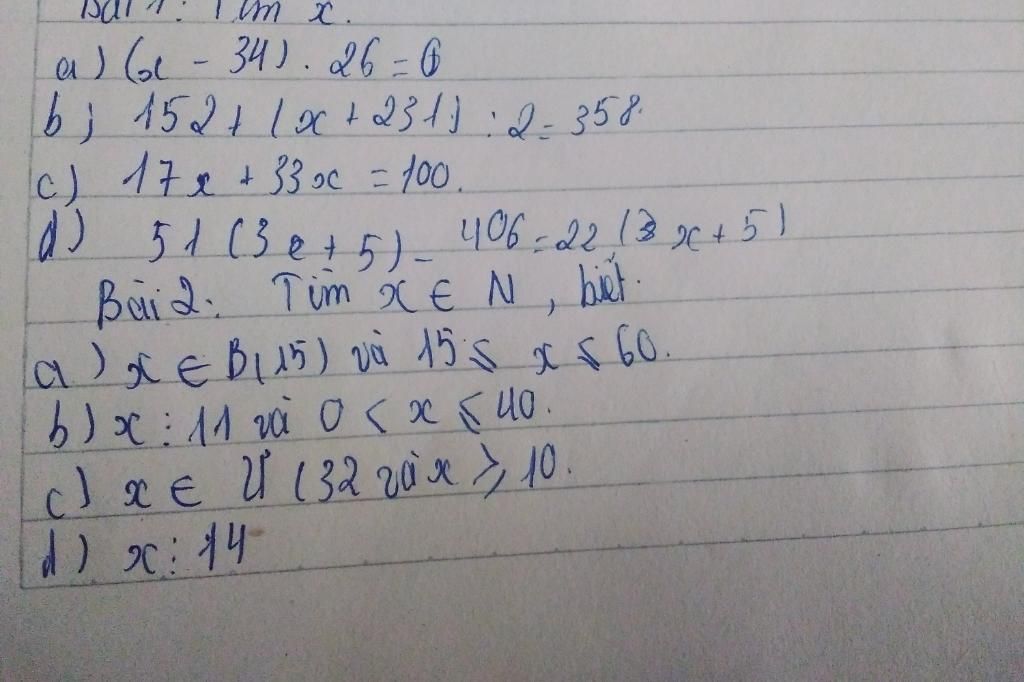 Bài 1: Tìm x.
a) (x - 34). 26 = 0
b) 152 + (x + 231) : 2 = 358.
c) 17x + 33x = 100.
d) 51 (3x + 5) - 406 = 22 (3x + 5)
Bài 2: Tìm x ∈ N, biết.
a) x ∈ B(15) và 15 ≤ x ≤ 60.
b) x : 11 và 0 < x ≤ 40.
c) x ∈ Ư (32 và x ≥ 10.
d) x : 14